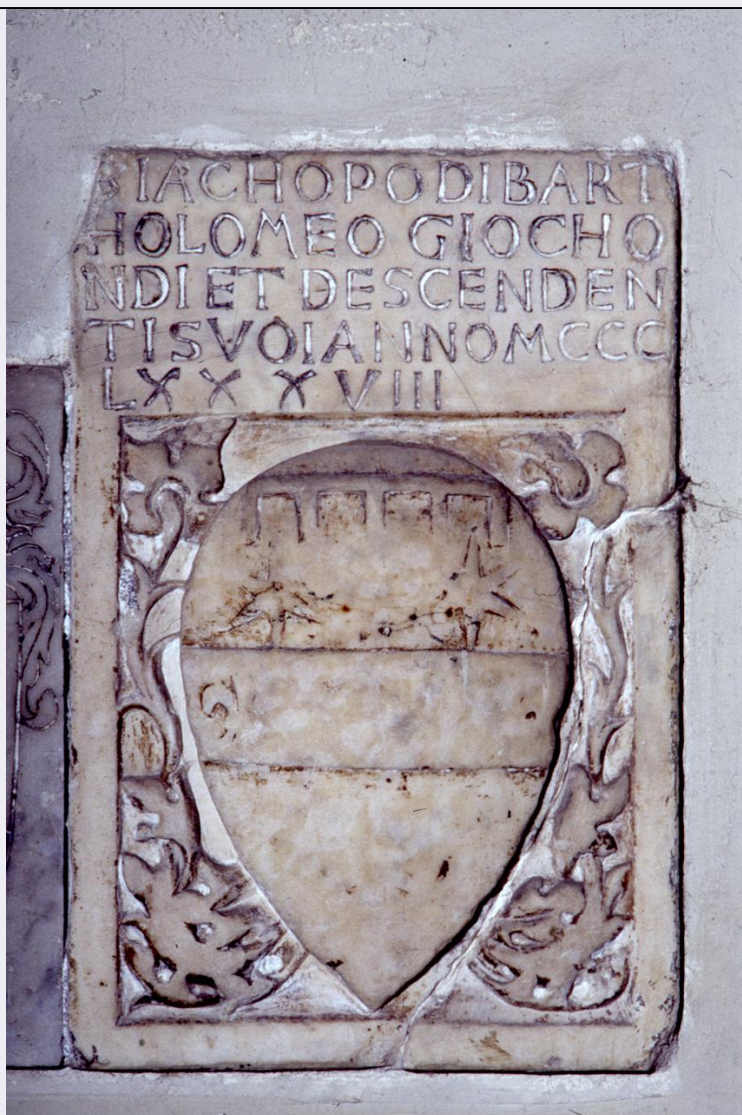 IACHOPODIBART
HOLOMEO GIOCHO
NDI ET DESCENDEN
TISVOIANNOMCCC
LXXXVIII